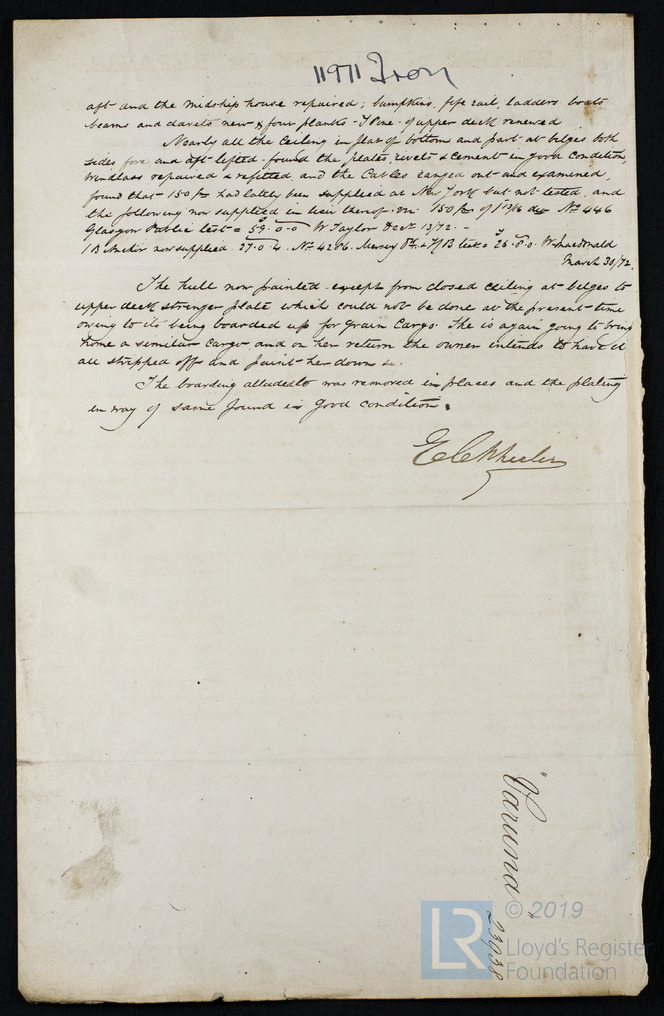 11911 Iron
aft and the midship house repaired; bumpkins, fife rail, ladders boats
beams and davits new & four planks - P Pine - of upper deck renewed
Nearly all the Ceiling in flat of bottom and part at bilges both
sides fore and aft lifted - found the plates, rivets & cement in good condition,
Windlass repaired & refitted, and the Cables ranged out and examined,
found that 150 fms had lately been supplied at New York but not tested, and
the following now supplied in lieu thereof - viz 150 fms of 1 13/16 No 446
Glasgow Public test = 59.0.0 W Taylor Decr 13/72. -
1 B Anchor now supplied. 37.0.4. No 4286. Mersey Test = 25.8.0. W. Macdonald
March 30/72.
The hull now painted except from closed ceiling at bilges to
upper deck stringer plate which could not be done at the present time
owing to its being boarded up for grain Cargo. She is again going to bring
home a similar Cargo and on her return the owner intends to have it
all stripped off and paint her down &c.
The boarding alluded to was removed in places and the plating
in way of same found in good condition.
E C Wheeler
"Varuna"
23938
LR
© 2019
Lloyd's Register
Foundation